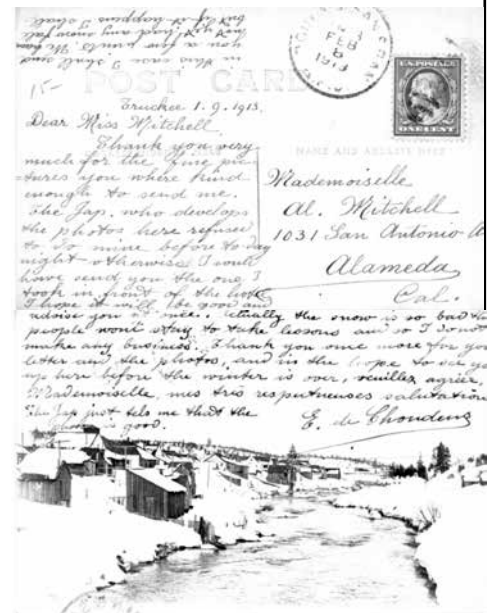 in this case I shall send
you a few We have
not yet had any snow fall
but if it happens I shall
POST CARD
FEB
8
1913
U.S. POSTAGE
ONE CENT
15-
Truckee 1. 9. 1913.
Dear Miss Mitchell
Thank you very
much for the fine pic
=tures you where kind
enough to send me.
The Jap, who develops
the photos here refused
to do mine before to day
night otherwise I would
have send you the one I
took in front of the hotel
I hope it will be good and
NAME AND ADDRESS HERE
Mademoiselle
Al. Mitchell
1031 San Antonio A
Alameda
Cal.
advise you at once. Actually the snow is so bad tha
people wont stay to take lessons and so I do not
make any business. Thank you once more for you
letter and the photos, and in the hope to see yo
up here before the winter is over, veuillez agréer,
Mademoiselle, mes très respectueuses salutation
The Jap just tells me that the
photo is good.
E. de Choudens